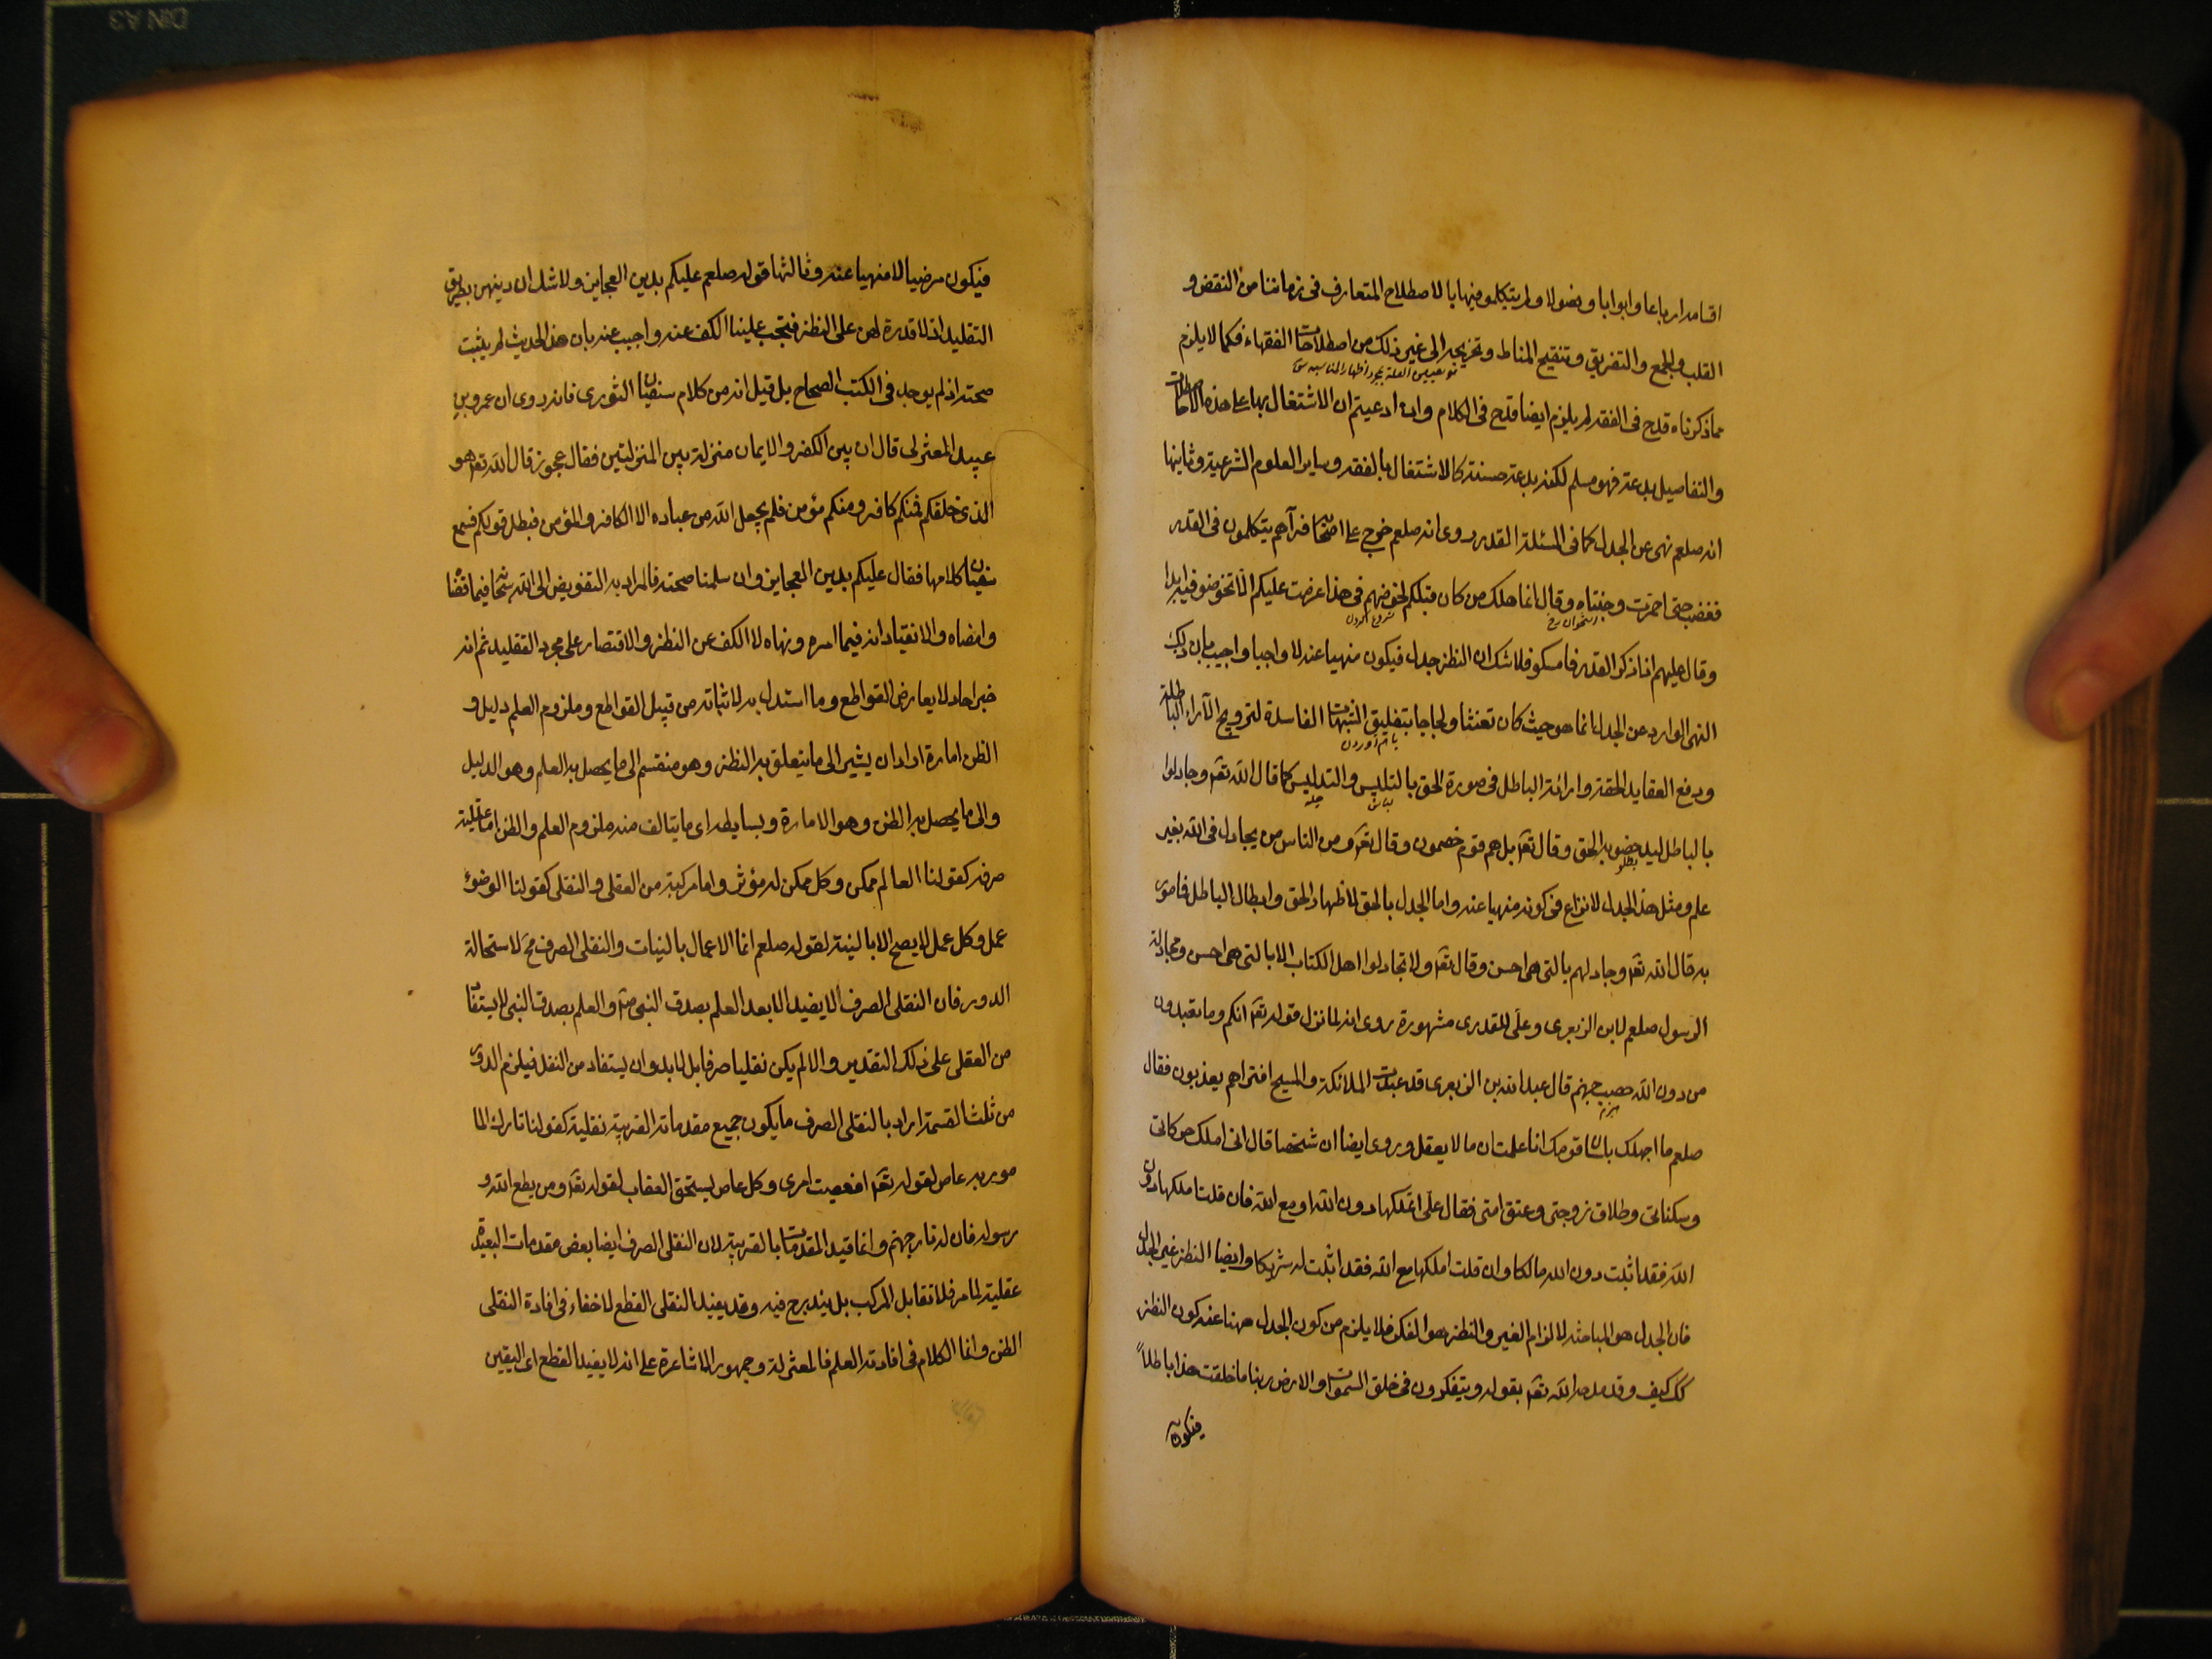 اقسامه ارباعا وابوابا وفصولا ولم يتكلمو فيها بالاصطلاح المتعارف فى زماننا من النقض و
القلب والجمع والتفريق وتنقيح المناط وتخريجه الى غير ذلك من اصطلاحات الفقهاء فكما لا يلزم
مما ذكرناه قدح فى الفقه لم يلزم ايضا قدح فى الكلام وان ادعيتم ان الاشتغال بها على هذه الاصطلاحات
والتفاصيل بدعة فهو مسلم لكنه بدعة حسنة كالاشتغال بالفقه وساير العلوم الشرعية وثانيها
انه صلعم نهى عن الجدل كما فى المسئلة القدر روى انه صلعم خرج على اصحابه فرآهم يتكلمون فى القدر
فغضب حتى احمرت وجنتاه وقال انما هلك من كان قبلكم لخوضهم فى هذا عزمت عليكم ان لا تخوضو فيه ابدا
وقال عليهم اذا ذكر القدر فامسكو فلا شك ان النظر جدل فيكون منهيا عنه لا واجبا واجيب بان ذلك
النهى الوارد عن الجدل انما هو حيث كان تعنتا ولجاجا بتفليق الشبهات الفاسدة لترويج الآراء الباطلة
ودفع العقايد الحقة وارائة الباطل فى صورة الحق بالتلبيس والتدليس كما قال الله تعه وجادلوا
بالباطل ليدحضو به الحق وقال تعه بل هم قوم خصمون وقال تعه ومن الناس من يجادل فى الله بغير
علم ومثل هذا الجدل لا نزاع فى كونه منهيا عنه واما الجدل بالحق لاظهار الحق وابطال الباطل فامور
به قال الله تعه وجادلهم بالتى هى احسن وقال تعه ولا تجادلوا اهل الكتاب الا بالتى هى احسن ومجادلة
الرسول صلعم لابن الزبعرى وعلى للقدرى مشهورة روى انه لما نزل قوله تعه انكم وما تعبدون
من دون الله حصب جهنم قال عبد الله بن الزبعرى قد عبدت الملائكة والمسيح افتراهم يعذبون فقال
صلعم ما اجهلك بلسان قومك اما علمت ان ما لا يعقل وروى ايضا ان شخصا قال انى املك حركاتى
وسكناتى وطلاق زوجتى وعتق امتى فقال على اتملكها دون الله او مع الله فان قلت املكها دون
الله فقد اثبت دون الله مالكا وان قلت املكها مع الله فقد اثبت له شريكا وايضا النظر غير الجدل
فان الجدل هو المباحثه لالزام الغير والنظر هو الفكر فلا يلزم من كون الجدل منهيا عنه كون النظر
كك كيف وقد مدحه الله تعه بقوله ويتفكرون فى خلق السموات والارض ربنا ما خلقت هذا باطلاً
فيكون
فيكون مرضيا لا منهيا عنه وثالثها قوله صلعم عليكم بدين العجايز ولا شك ان دينهن بطريق
التقليد اذ لا قدرة لهن على النظر فيجب علينا الكف عنه واجيب عنه بان هذا الحديث لم يثبت
صحته اذ لم يوجد فى الكتب الصحاح بل قيل انه من كلام سفيان الثورى فانه روى ان عمرو بن
عبيد المعتزلى قال ان بين الكفر والايمان منزلة بين المنزلتين فقال عجوز قال الله تعه هو
الذى خلقكم فمنكم كافر ومنكم مؤمن فلم يجعل الله من عباده الا الكافر والمؤمن فبطل قولكم فسمع
سفيان كلامها فقال عليكم بدين العجايز وان سلمنا صحته فالمراد به التفويض الى الله سبحانه فيما قضا
وامضاه والانقياد له فيما امره ونهاه لا الكف عن النظر والاقتصار على مجرد التقليد ثم انه
خبر احاد لا يعارض القواطع وما استدل به لاثباته من قبيل القواطع وملزوم العلم دليل و
الظن امارة اراد ان يشير الى ما يتعلق به النظر وهو منقسم الى ما يحصل به العلم وهو الدليل
والى ما يحصل به الظن وهو الامارة وبسايطه اى ما يتالف منه ملزوم العلم والظن اما عقلية
صرفه كقولنا العالم ممكن وكل ممكن له مؤثر واما مركبة من العقلى والنقلى كقولنا الوضوء
عمل وكل عمل لا يصح الا بالنية لقوله صلعم انما الاعمال بالنيات والنقلى الصرف مح لاستحالة
الدور فان النقلى الصرف لا يفيد الا بعد العلم بصدق النبى والعلم بصدق النبى لا يستفاد
من العقلى على ذلك التقدير والا لم يكن نقليا صرفا بل لابد وان يستفاد من النقل فيلزم الدور
من ثلث القسمة اراد بالنقلى الصرف ما يكون جميع مقدماته القريبة نقلية كقولنا تارك الما
مور به عاص لقوله تعه افعصيت امرى وكل عاص يستحق العقاب لقوله تعه ومن يطع الله و
رسوله فان له نار جهنم وانما قيد المقدمات بالقريبة لان النقلى الصرف ايضا بعض مقدمات البعيدة
عقلية لما مر فلا تقابل المركب بل يندرج فيه وقد يفيد النقلى القطع لا خفاء فى افادة النقلى
الظن وانما الكلام فى افادته العلم فالمعتزلة وجمهور الاشاعرة على انه لا يفيد القطع اى اليقين